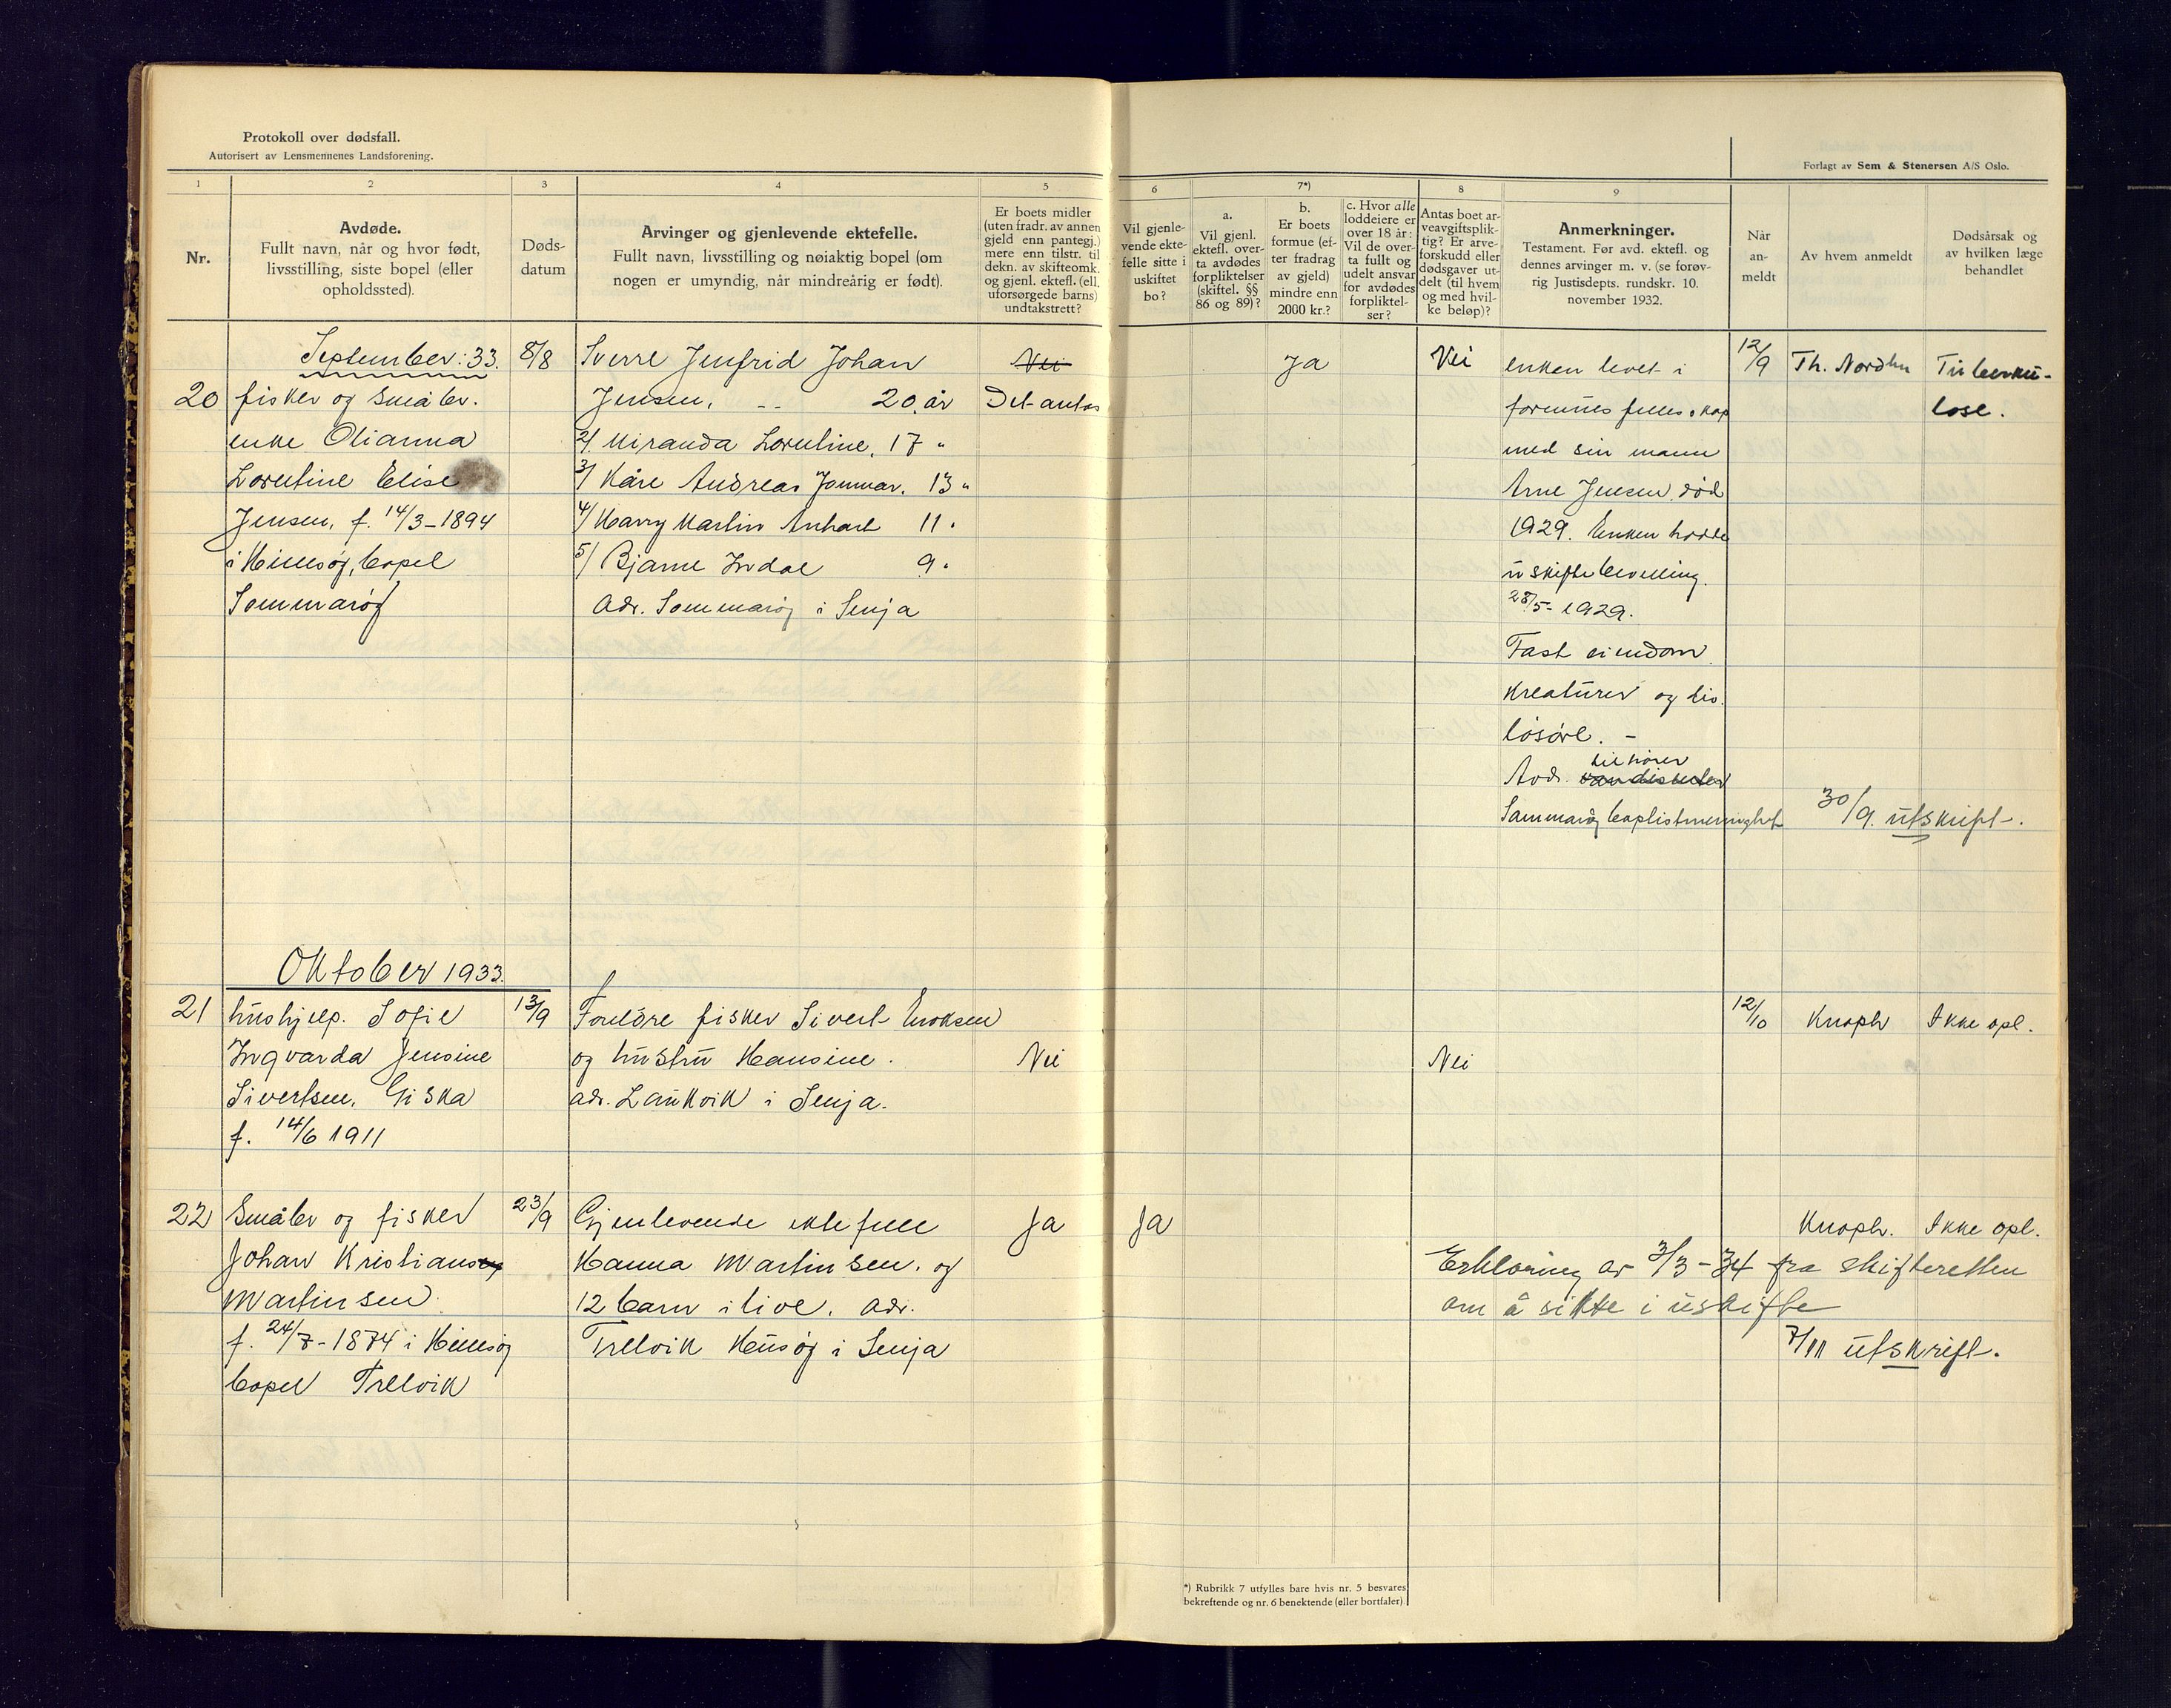 Protokoll over dødsfall.
Autorisert av Lensmennenes Landsforening.
Forlagt av Sem & Stenersen A/S Oslo.
1
2
3
4
5
6
7*)
8
9
Nr.
Avdøde.
Fullt navn, når og hvor født,
livsstilling, siste bopel (eller
opholdssted).
Døds-
datum
Arvinger og gjenlevende ektefelle.
Fullt navn, livsstilling og nøiaktig bopel (om
nogen er umyndig, når mindreårig er født).
Er boets midler
(uten fradr. av annen
gjeld enn pantegj.)
mere enn tilstr. til
dekn. av skifteomk.
og gjenl. ektefl. (ell.
uforsørgede barns)
undtakstrett?
Vil gjenle-
vende ekte-
felle sitte i
uskiftet
bo?
a.
Vil gjenl.
ektefl. over-
ta avdødes
forpliktelser
(skiftel. §§
86 og 89)?
b.
Er boets
formue (ef-
ter fradrag
av gjeld)
mindre enn
2000 kr.?
c. Hvor alle
loddeiere er
over 18 år:
Vil de over-
ta fullt og
udelt ansvar
for avdødes
forpliktel-
ser?
Antas boet ar-
veavgiftsplik-
tig? Er arve-
forskudd eller
dødsgaver ut-
delt (til hvem
og med hvil-
ke beløp)?
Anmerkninger.
Testament. Før avd. ektefl. og
dennes arvinger m. v. (se forøv-
rig Justisdepts. rundskr. 10.
november 1932.
Når
an-
meldt
Av hvem anmeldt
Dødsårsak og
av hvilken læge
behandlet
September: 33.
20
fisker og småbr.
enke Olianna
Lorentine Elise
Jensen, f. 14/3-1894
i Hillesøy, bopel
Sommarøy
8/8
Sverre Jenfrid Johan
Jensen, 20 år
2/ Miranda Lorentine, 17 "
3/ Kåre Andreas Jonmar. 13 "
4/ Harry Martin Anhart 11 "
5/ Bjarne Indal 9 "
Adr. Sommarøy i Senja
Nei
Det antas
Ja
Nei
enken levet i
formues fellesskap
med sin mann
Arne Jensen, død
1929. Enken hadde
uskiftebevilling.
28/5-1929.
Fast eiendom
kreaturer og div.
løsøre. -
tilhører
Avd.
Sommarøy baptistmenighet
12/9
Th. Nordhu
Tuberku-
lose.
30/9. utskrift.
Oktober 1933.
21
hushjelp. Sofie
Ingvarda Jensine
Sivertsen, Giska
f. 14/6 1911
13/9
Foreldre fisker Sivert Enoksen
og hustru Hansine.
adr. Laukvik i Senja.
Nei
Nei
12/10
Knoph
Ikke opl.
22
Småbr og fisker
Johan Kristian
Martinsen
f. 24/7-1874 i Hillesøy
bopel Trelvik
23/9
Gjenlevende ektefelle
Hanna Martinsen. og
12 barn i live. adr.
Trelvik Husøy i Senja
Ja
Ja
Knoph.
Ikke opl.
Erklæring av 3/3-34 fra skifteretten
om å sitte i uskifte
7/11 utskrift.
*) Rubrikk 7 utfylles bare hvis nr. 5 besvares
bekreftende og nr. 6 benektende (eller bortfaler).